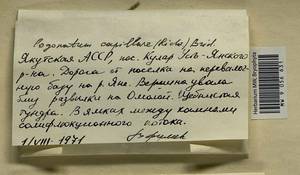 Pogonatum capillare (Richs) Brid
Якутская АССР, пос. Кулар Усть-Янского
р-на. Дорога от поселка на перевалоч-
ную базу на р. Яне. Вершина увала
близ развилки на Омолой. Щебнистая
тундра. В ямках между комнями
солифлюкционного потока.
1/VIII-1971
Herbarium MHA, Bryophyta